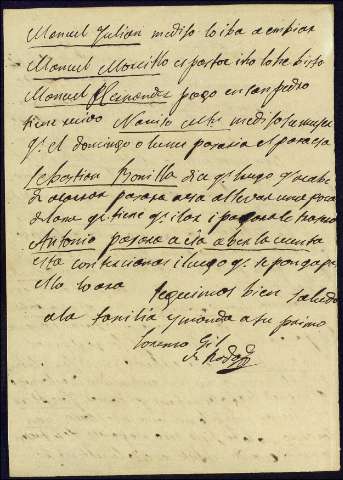 Manuel Julian me dijo lo iba a embiar
Manuel Morcillo es pastor i no lo he bisto
Manuel Hernandez pago en san pedro
tiene recivo Narciso me dijo su muger
qᵉ el domingo o lunes pasaria el para esa
Sebastian Bonilla dice qᵉ luego qᵉ acabe
de pasara a esa a llevar una poca
de lana qᵉ tiene qᵉ ilar i pagara lo
Antonio pasara a esa a ber la cuenta
esta con tercianas i luego qᵉ se ponga
ello lo ara
seguimos bien saludo
a la familia y manda a tu primo
Lorenzo Gil
de Rodgᶻ